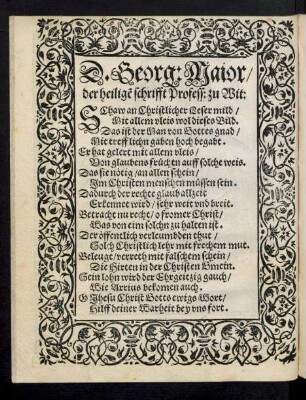 D. Georg: Maior/
der heilige schrifft Profess: zu Wit:
SChaw an Christlicher Leser mild /
Mit allem vleis wol dieses Bild.
Das ist der Man von Gottes gnad /
Mit trefflichn gaben hoch begabt.
Er hat gelert mit allem vleis /
Von glaubens früchten auff solche weis.
Das sie nötig / an allen schein /
Im Christen menschen müssen sein.
Dadurch der rechte glaub allzeit
Erkennet wird / sehr weit vnd breit.
Betracht nu recht / o fromer Christ /
Was von eim solchn zu halten ist.
Der öffentlich verleumbden thut /
Solch Christlich lehr mit frechem mut.
Beleuge / verreth mit falschem schein /
Die Hirten in der Christen Gmein.
Sein lohn wird der Ehrgeitzig gauch /
Wie Arrius bekomen auch.
O Jhesu Christ Gotts ewigs Wort /
Hilff deiner Warheit bey vns fort.